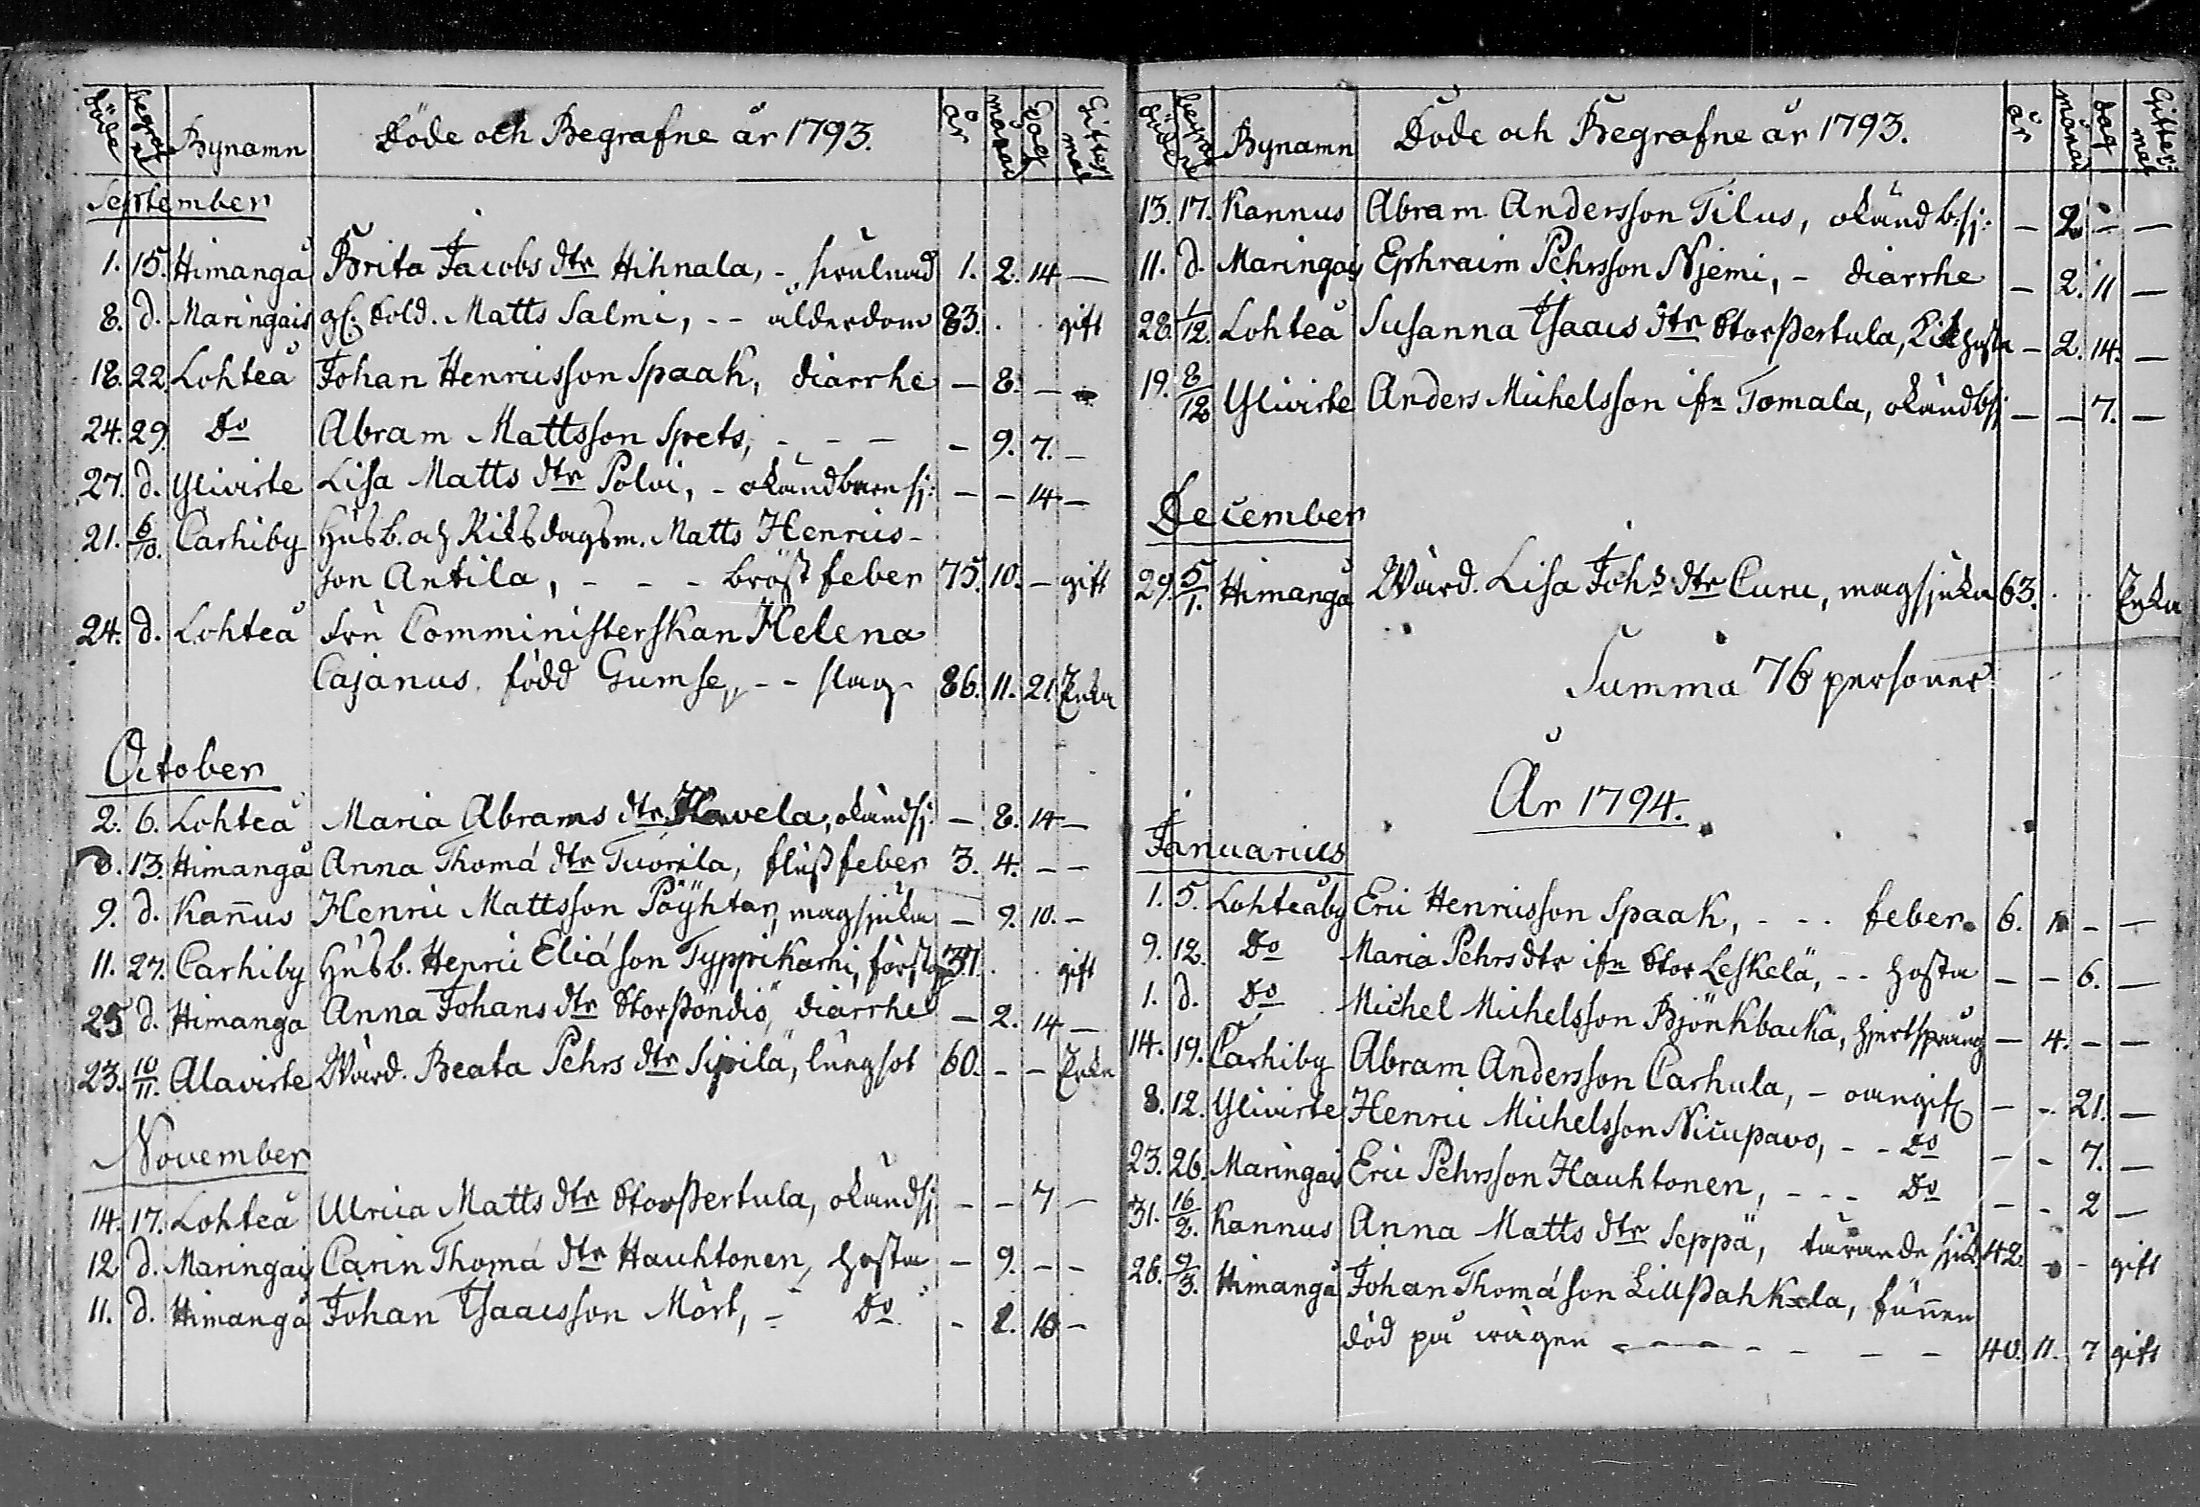 döde begrafne Bynamn Döde och Begrafne år 1793. år månad dag Giftermål
September
1. 15. Himangå Brita Jacobs dtr Hihnala, - 1. 2. 14 —
8. d. Maringais gl. Sold. Matts Salmi, - - ålderdom 83. . . gift
18. 22. Lohteå Johan Henricsson Spaak, diarrhe — 8. — —
24. 29. Do Abram Mattsson Spets, - - - - 9. 7. -
27. d. Ylivirte Lisa Matts dtr Polvi, - okänd barnsj: — — 14 —
21. 6/10. Carhiby Husb. och Riksdagsm. Matts Henrics-
son Antila, - - - bröstfeber 75. 10. — gift
24. d. Lohteå Fru Comministerskan Helena
Cajanus. född Gumse, - - slag 86. 11. 21. Enka
October
2. 6. Lohteå Maria Abrams dtr Havela, okänd sj: — 8. 14 —
13. Himangå Anna Thomæ dtr Tuorila, flussfeber 3. 4. — —
9. d. Kanus Henric Mattsson Pöyhtäri, magsjuka — 9. 10. -
11. 27. Carhiby Husb. Henric Eliæson Typpikarhi, 31. . . gift
25 d. Himanga Anna Johans dtr Storpondio, diarrhe — 2. 14 —
23. 10/11. Alavirte Wärd. Beata Pehrs dtr Sipilä, lungsot 60. - — Enka
November
14. 17. Lohteå Ulrica Matts dtr Storpertula, okänd sj - — 7 —
12 d. Maringais Carin Thomæ dtr Hauhtonen, hosta — 9. - -
11. d. Himangå Johan Isaacsson Mört, - Do - 2. 10 -
döde begrafne Bynamn Döde och Begrafne år 1793. år månad dag Giftermål
13. 17. Kannus Abram Andersson Tilus, okänd b:sj: — 2 - —
11. d. Maringais Ephraim Pehrsson Njemi, - diarrhe — 2. 11 —
28. 1/12. Lohteå Susanna Isaacs dtr Storpertula, Kikhosta — 2. 14. —
19. 8/12 Ylivirte Anders Michelsson ifn Tomala, okänd bsj — — 7. —
December
29. 5/1. Himangå Wärd. Lisa Johs dtr Curu, magsjuka 63. . . Enka
Summa 76 personer
År 1794.
Januarius
1. 5. Lohteåby Eric Henricsson Spaak, - - . feber 6. 1 - —
9. 12. Do Maria Pehrs dtr ifn Stor Leskelä, - - hosta — — 6. —
1. d. Do Michel Michelsson Björkbacka, hjertsprång — 4. - —
14. 19. Carhiby Abram Andersson Carhula, - oangif — - 21. —
8. 12. Ylivirte Henric Michelsson Nicupavo, - - Do — - 7. —
23. 26. Maringais Eric Pehrsson Hauhtonen, - - - Do — - 2 —
31. 16/2. Kannus Anna Matts dtr Seppä, tärande sjuk. 42. - - gift
28. 9/3. Himangå Johan Thomæson Lillpahkala, funnen
död på wägen - - - - - - - 40. 11. 7 gift